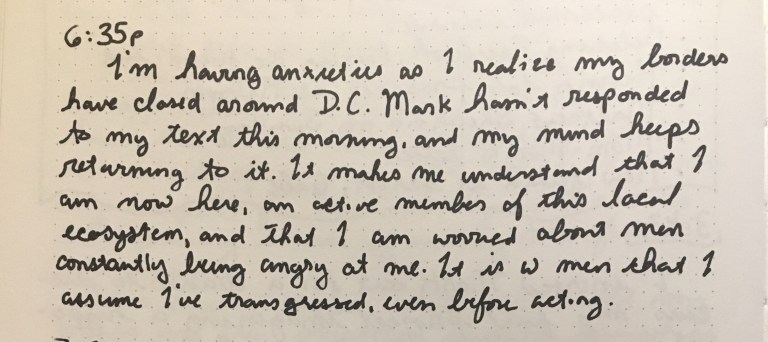 6:35p
I'm having anxieties as I realize my borders
have closed around D.C. Mark hasn't responded
to my text this morning, and my mind keeps
returning to it. It makes me understand that I
am now here, an active member of this local
ecosystem, and that I am worried about men
constantly being angry at me. It is w men that I
assume I've transgressed, even before acting.